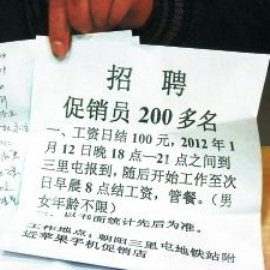 招聘
促销员 200 多名
一、工资日结 100 元，2012 年 1
月 12 日晚 18 点—21 点之间到
三里屯报到，随后开始工作至次
日早晨 8 点结工资，管餐。（男
女年龄不限）
二、以书面统计先后为准。
工作地点：朝阳三里屯地铁站附
近苹果手机促销店